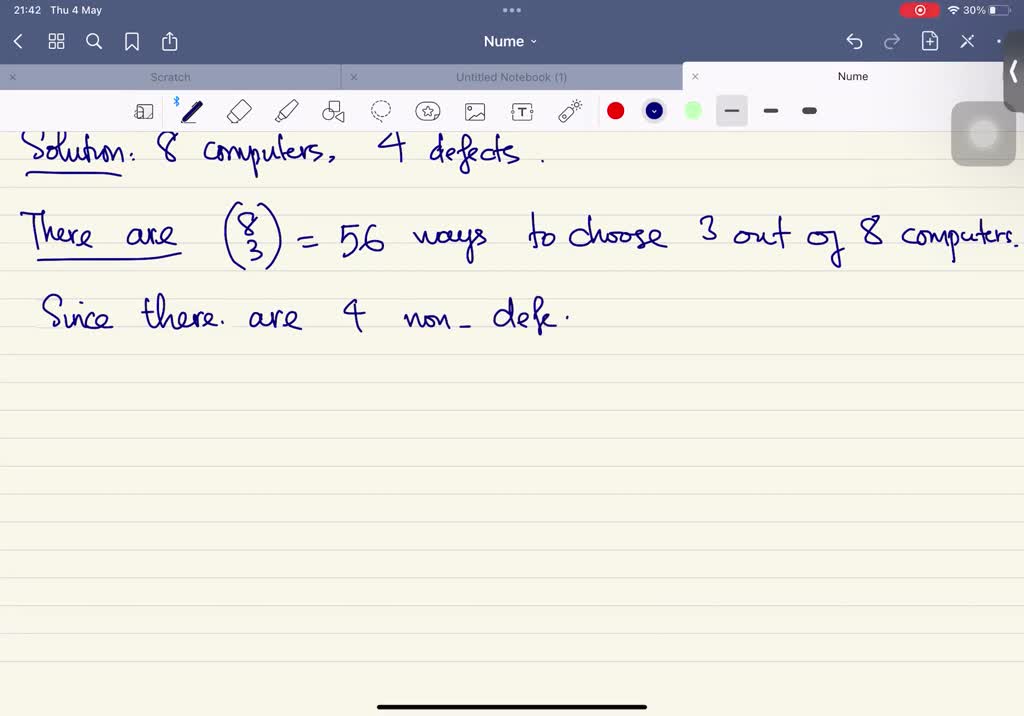 21:42 Thu 4 May
30%
Nume
Scratch
Untitled Notebook (1)
Nume
Solution: 8 computers, 4 defects.
There are (8 3) = 56 ways to choose 3 out of 8 computers.
Since there are 4 non-defe.